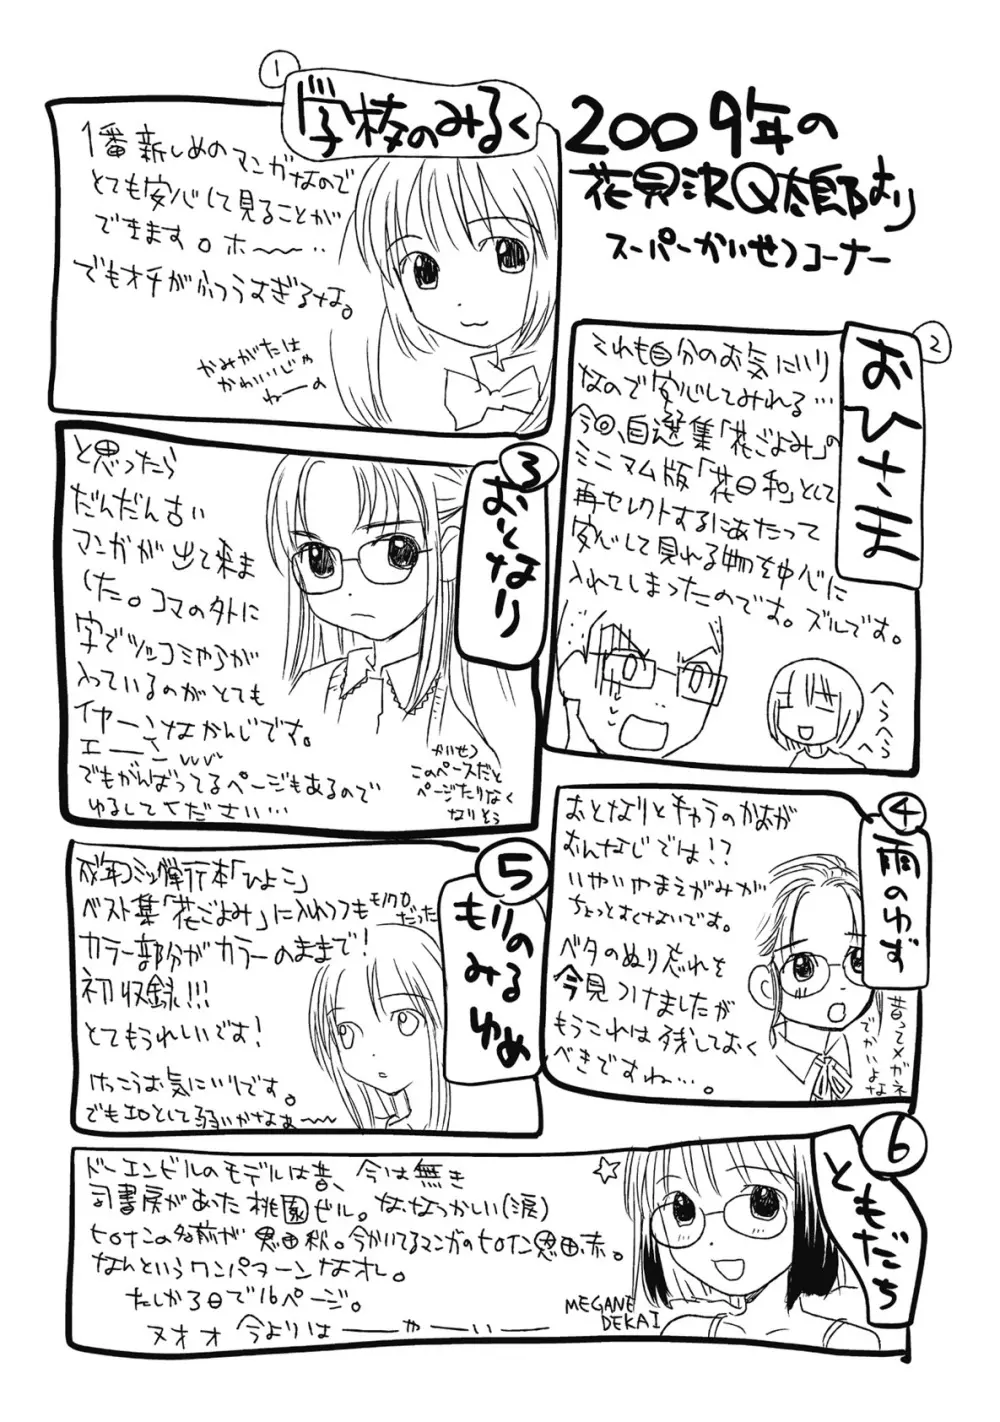 2009年の
花見沢Q太郎より
スーパーかいせつコーナー
1
学校のみるく
1番新しめのマンガなので
とても安心して見ることが
できます。ホ〜〜‥
でもオチがふつうすぎるな。
かみがたは
かわいいじゃ
ねーの
2
おひさま
これも自分のお気に入り
なので安心してみれる…
今回、自選集「花ごよみ」の
ミニマム版「花日和」として
再セレクトするにあたって
安心して見れる物を中心に
入れてしまったのです。ズルです。
へらへら
へ
3
おとなり
と思ったら
だんだん古い
マンガが出て来ま
した。コマの外に
字でツッコミやらが
入っているのがとても
イヤーンなかんじです。
エーン
でもがんばってるページもあるので
ゆるしてください…
かいせつ
このペースだと
ページたりなく
なりそう
4
雨のゆず
おとなりとキャラのかおが
おんなじでは!?
いやいやまえがみが
ちょっとすくないです。
ベタのぬり忘れを
今見つけましたが
もうこれは残しておく
べきですね…。
昔ってメガネ
でかいよな
5
もりの
みる
ゆめ
成年コミック単行本「ひよこ」
ベスト集「花ごよみ」に入れつつも
モノクロ
だった
カラー部分がカラーのままで!
初収録!!!
とてもうれしいです!
けっこうお気に入りです。
でもエロとして弱いかなぁ〜〜
6
ともだち
ドーエンビルのモデルは昔、今は無き
司書房があった桃園ビル。ななつかしい(涙)
ヒロインの名前が恩田秋。今かいてるマンガのヒロイン恩田赤。
なんというワンパターンなオレ。
たしか3日で16ページ。
ヌオオ 今よりは――や―い――
MEGANE
DEKAI